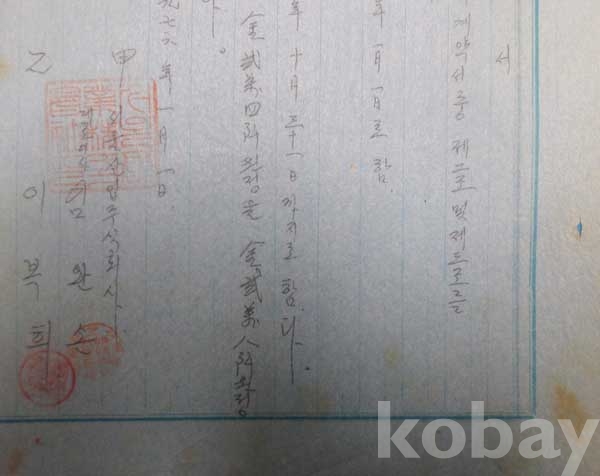 서
계약서중 제二조 및 제三조를
年 一月 一日로 함.
年 十月 三十一日 까지로 함.
金 貳萬四阡원정을 金 貳萬八阡원정
다.
年 一月 一日.
甲 주식회사
대표이사 완
乙 이 복 희
kobay